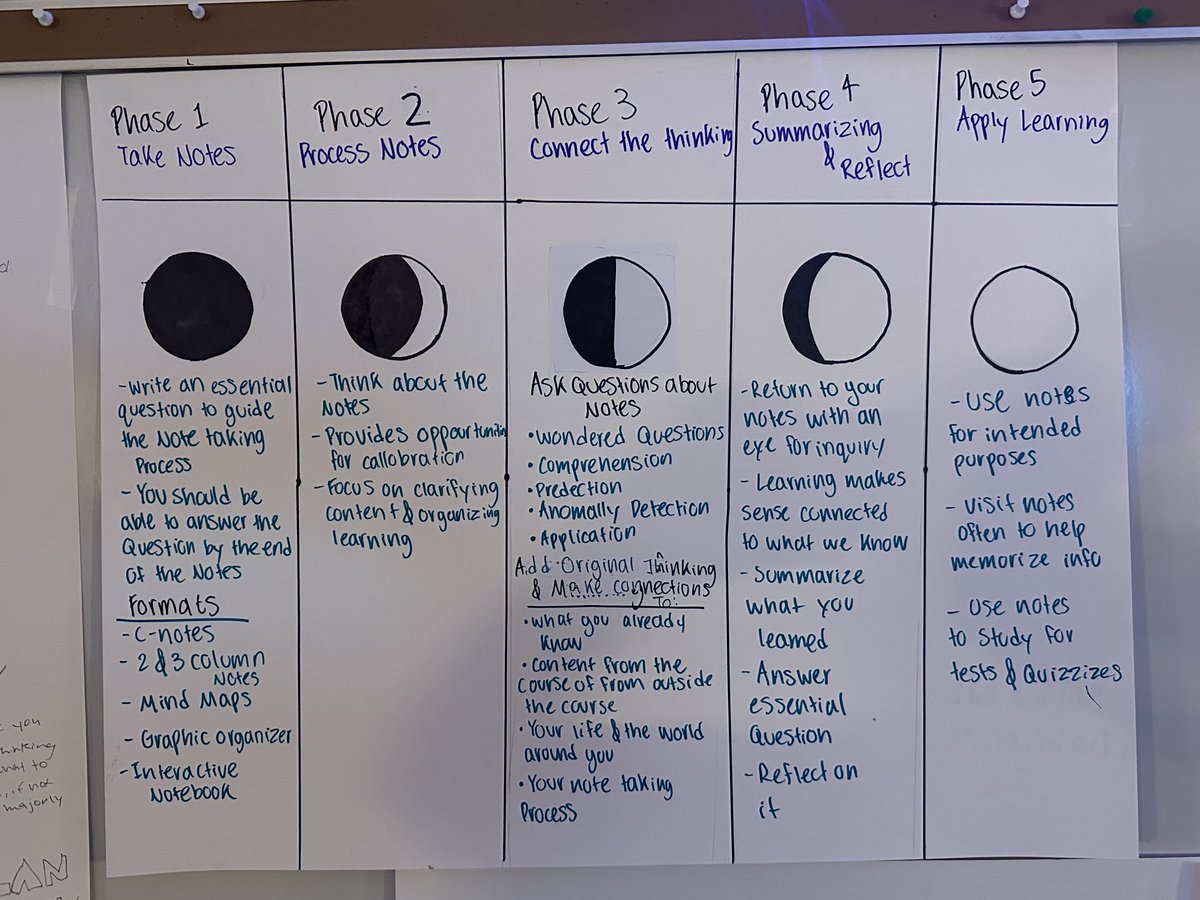 Phase 1
Take Notes
-Write an essential
question to guide
the Note taking
Process
- You should be
able to answer the
Question by the end
of the Notes
Formats
- C-notes
- 2 & 3 column
Notes
- Mind Maps
- Graphic organizer
- Interactive
Notebook
Phase 2
Process Notes
- Think about the
Notes
- Provides oppourtunities
for callobration
- Focus on clarifying
content & organizing
learning
Phase 3
Connect the thinking
Ask Questions about
Notes
• Wondered Questions
• Comprehension
• Predection
• Anomally Detection
• Application
Add Original Thinking
& Make connections
To:
• what you already
Know
• Content from the
course of from outside
the course
• Your life & the world
around you
• Your note taking
Process
Phase 4
Summarizing
& Reflect
- Return to your
notes with an
eye for inquiry
- Learning makes
sense connected
to what we know
- Summarize
what you
learned
- Answer
essential
Question
- Reflect on
it
Phase 5
Apply Learning
- Use notes
for intended
purposes
- visit notes
often to help
memorize info
- Use notes
to Study for
tests & Quizzizes
you
to
if not
majorly